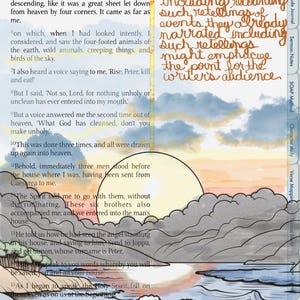 descending, like it was a great sheet let down
from heaven by four corners. It came as far as
me,
on which, when I had looked intently, I
considered, and saw the four-footed animals of
the earth, wild animals, creeping things, and
birds of the sky.
I also heard a voice saying to me, 'Rise, Peter, kill
and eat!'
But I said, 'Not so, Lord, for nothing unholy or
unclean has ever entered into my mouth.'
But a voice answered me the second time out of
heaven, 'What God has cleansed, don't you
make unholy.'
This was done three times, and all were drawn
up again into heaven.
Behold, immediately three men stood before
the house where I was, having been sent from
Caesarea to me.
The Spirit told me to go with them, without
discriminating. These six brothers also
accompanied me, and we entered into the man's
house.
He told us how he had seen the angel standing
in his house, and saying to him, 'Send to Joppa,
and get Simon, whose surname is Peter,
who will speak to you words by which you will
As I began to speak, the Holy Spirit fell on
them, even as on us at the beginning.
including recounting
such retellings of
events they already
narrated, including
such retellings
might emphasize
the point for the
writer's audience.